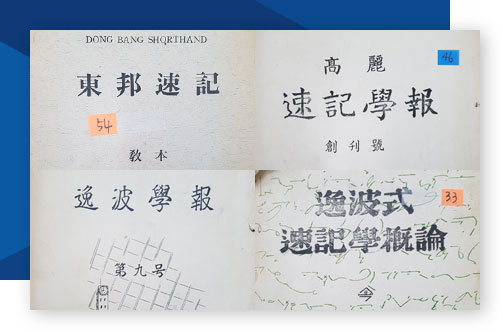 DONG BANG SHQRTHAND
東邦速記
54
敎本
高麗
46
速記學報
創刊號
逸波學報
第九号
逸波式
33
速記學概論